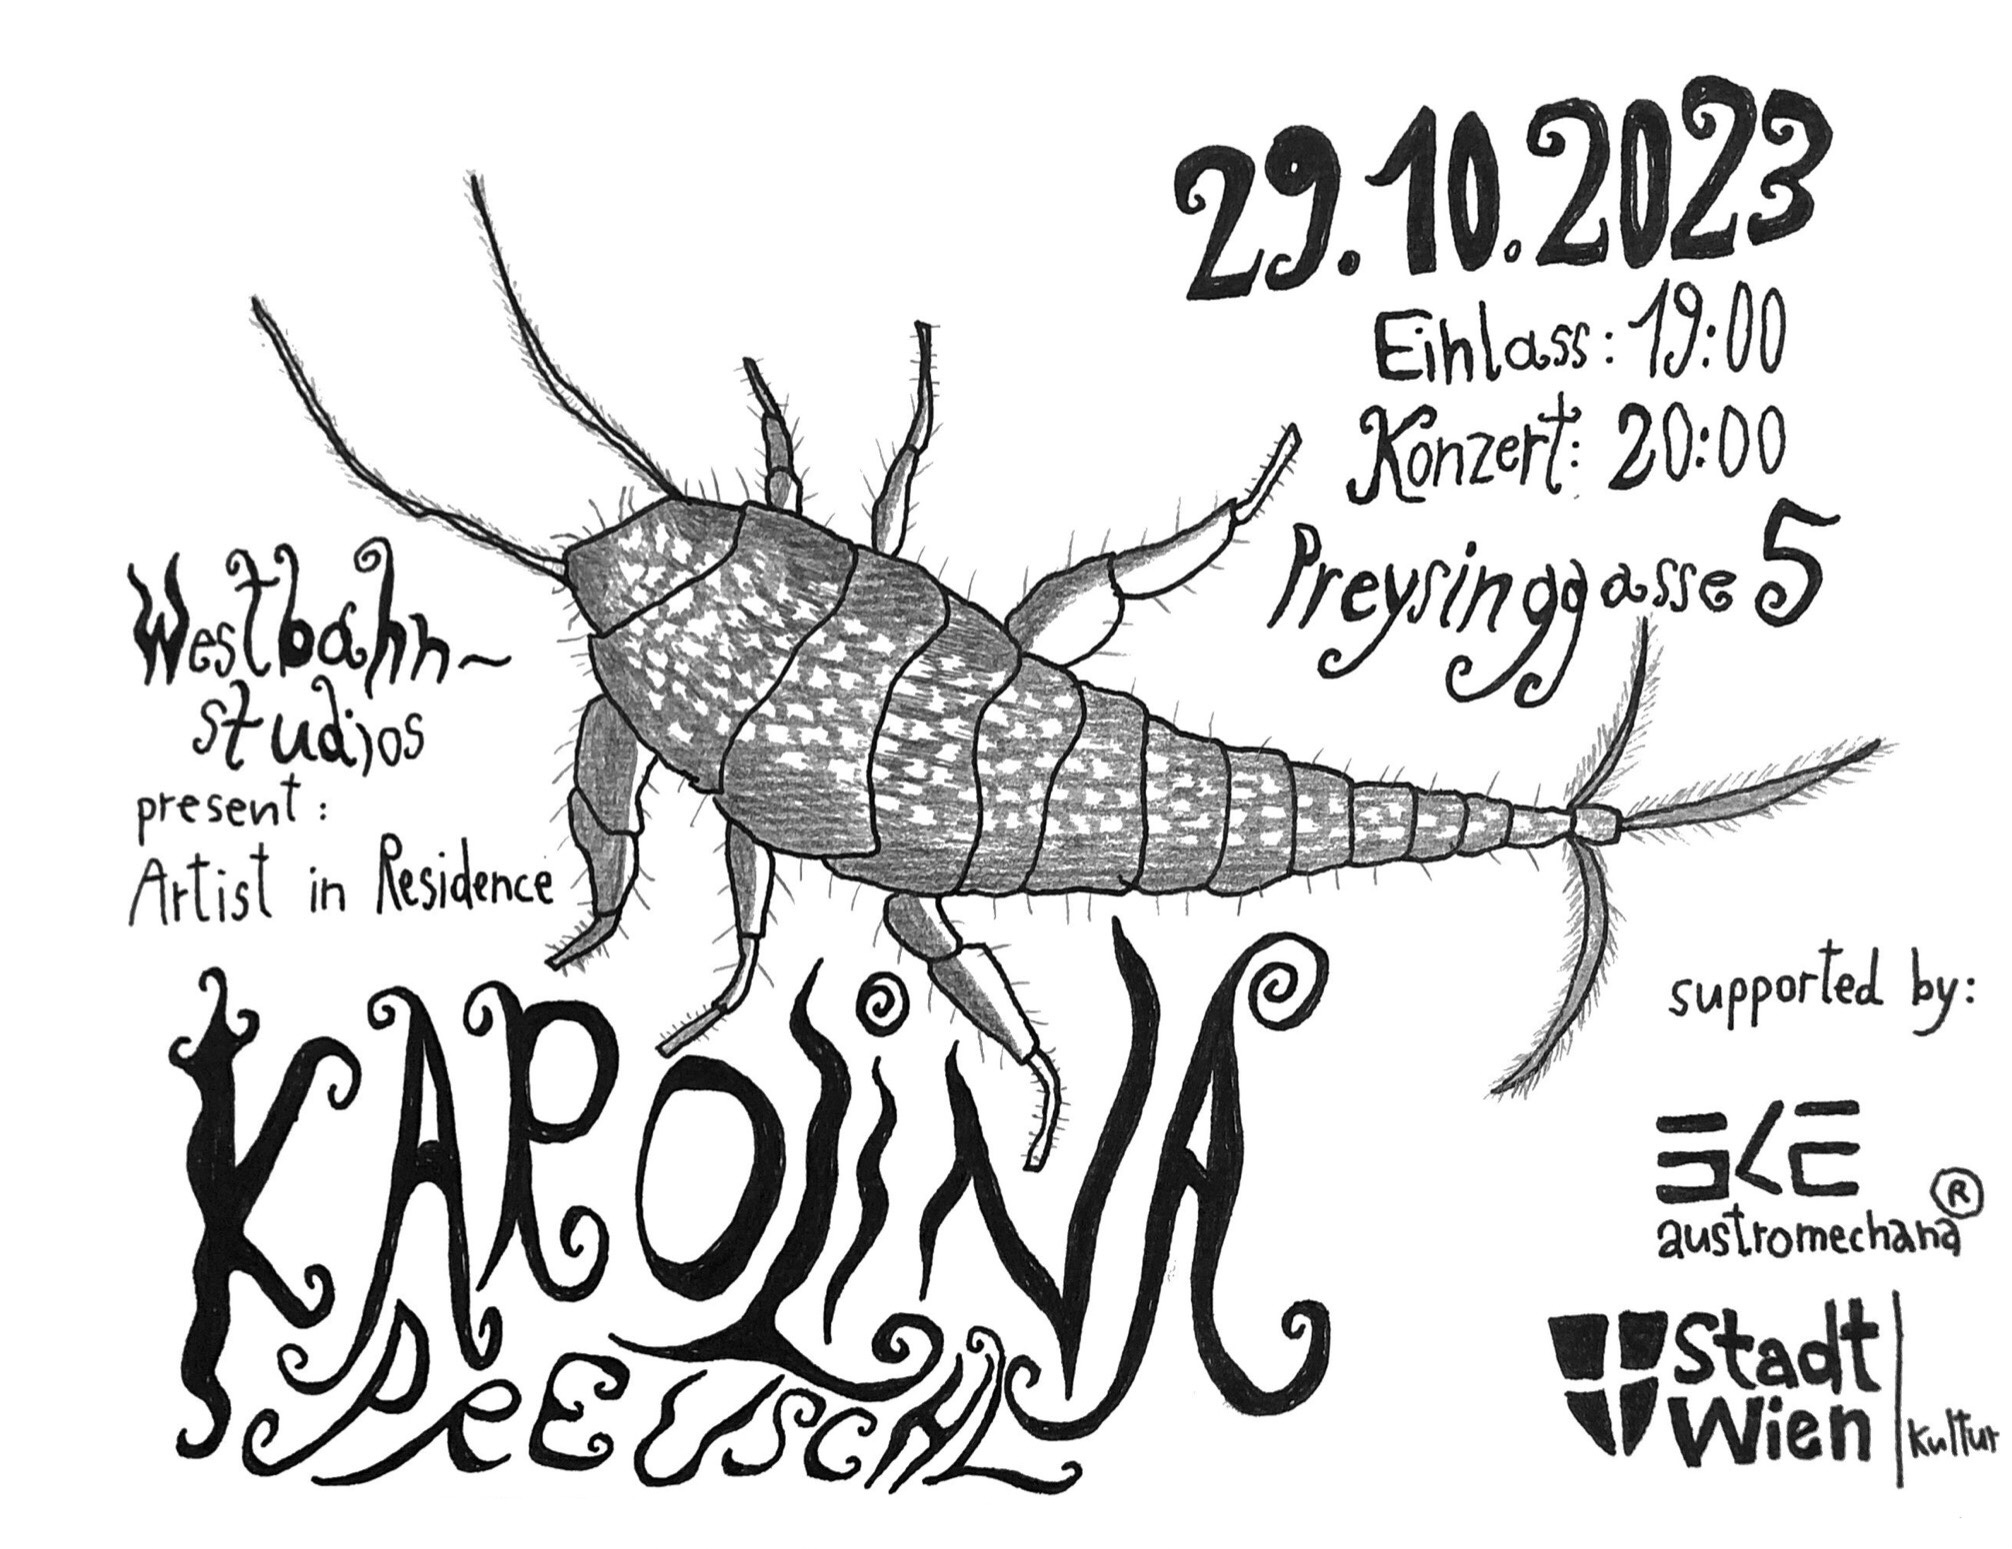 29.10.2023
Einlass: 19:00
Konzert: 20:00
Preysinggasse 5
Westbahn~
studios
present:
Artist in Residence
KAROLINA
PREUSCHL
supported by:
SKE
austromechana®
Stadt
Wien
Kultur